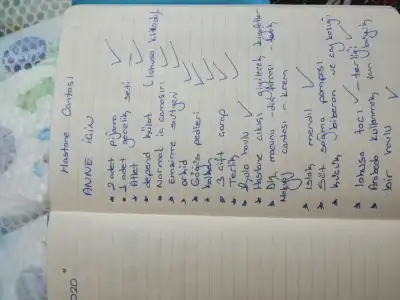 Hastane Çantası
ANNE İÇİN
* 2 adet pijama
* 1 adet gecelik seti
* Atlet
* depend külot (lohusa külodu)
* Normal iç çamaşırı
* Emzirme sütyeni
* orkid
* Göğüs pedleri
* 3 çift çorap
* Terlik
* Havlu
* Hastane çıkışı giyilecek kıyafetler
* Diş macunu - diş fırçası - tarak
Makyaj çantası - krem
* Islak mendil
* Süt sağma pompası
* küçük biberon ve çay kaşığı
* lohusa tacı - terliği
* Arabada kullanmak için büyük
bir havlu
2020"